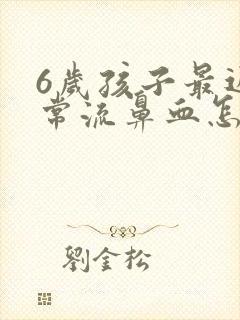 6歲孩子最近
常流鼻血怎
劉金松